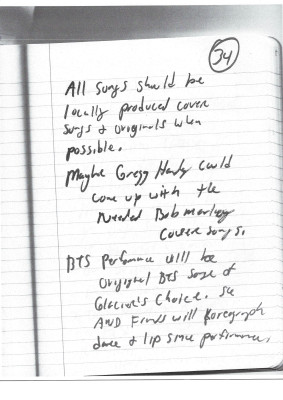 34
All songs should be
locally produced cover
songs & originals when
possible.
Maybe Gregg Hardy could
come up with the
Needed Bob marley
Couver songs.
BTS Performance will be
Original BTS songs of
Choice. She
AND Friends will Koregraph
dance & lip sinc performance.